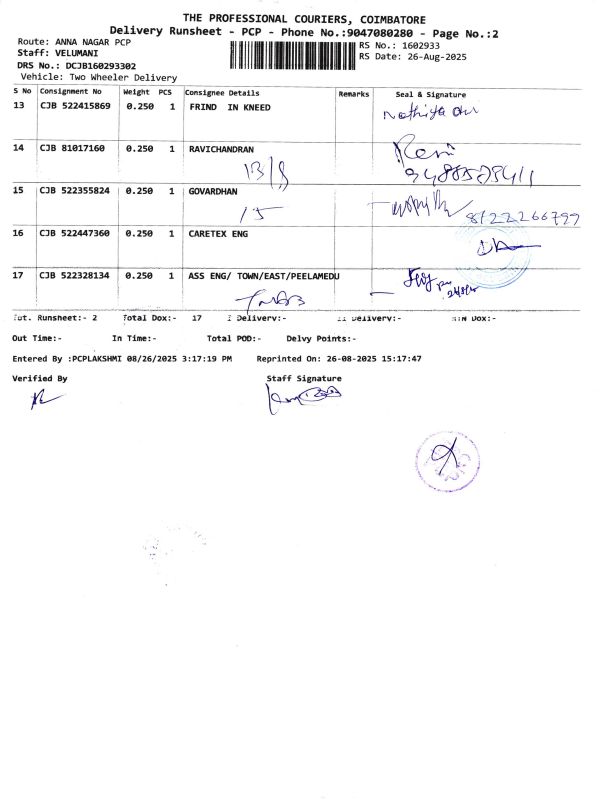 THE PROFESSIONAL COURIERS, COIMBATORE
Delivery Runsheet - PCP - Phone No.:9047080280 - Page No.:2
Route: ANNA NAGAR PCP
Staff: VELUMANI
DRS No.: DCJB160293302
Vehicle: Two Wheeler Delivery
RS No.: 1602933
RS Date: 26-Aug-2025
S No Consignment No Weight PCS Consignee Details Remarks Seal & Signature
13 CJB 522415869 0.250 1 FRIND IN KNEED
14 CJB 81017160 0.250 1 RAVICHANDRAN Ravi
13/8 9488578411
15 CJB 522355824 0.250 1 GOVARDHAN
15 8122266799
16 CJB 522447360 0.250 1 CARETEX ENG
17 CJB 522328134 0.250 1 ASS ENG/ TOWN/EAST/PEELAMEDU
Tot. Runsheet:- 2 Total Dox:- 17 I Delivery:- II Delivery:- N Dox:-
Out Time:- In Time:- Total POD:- Delvy Points:-
Entered By :PCPLAKSHMI 08/26/2025 3:17:19 PM Reprinted On: 26-08-2025 15:17:47
Verified By Staff Signature